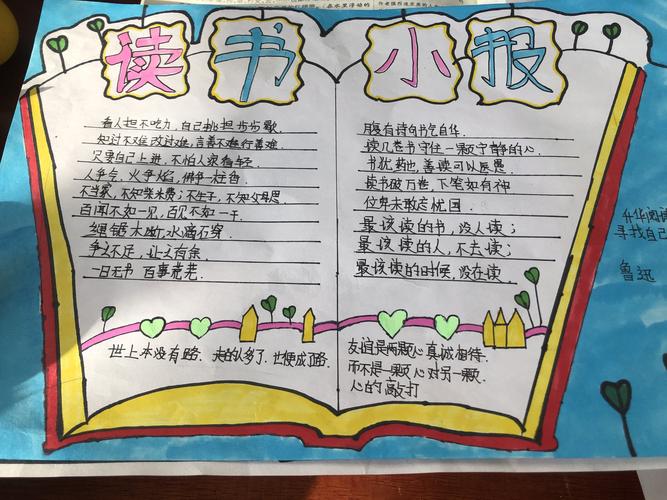 读书小报
看人担不吃力,自己挑担步步歇.
知过不难改过难,言善不难行善难.
只要自己上进,不怕人家看轻.
人争气,火争焰,佛争一柱香.
不当家,不知柴米费;不生子,不知父母恩.
百闻不如一见,百见不如一干.
绳锯木断,水滴石穿.
争之不足,让之有余.
一日无书 百事荒芜.
世上本没有路.走的人多了.也便成了路.
腹有诗书气自华.
读几卷书守住一颗宁静的心.
书犹药也,善读可以医愚.
读书破万卷,下笔如有神
位卑未敢忘忧国.
最该读的书,没人读;
最该读的人,不去读;
最该读的时候,没在读.
友谊是两颗心真诚相待.
而不是一颗心对另一颗
心的敲打
寻找自己
鲁迅